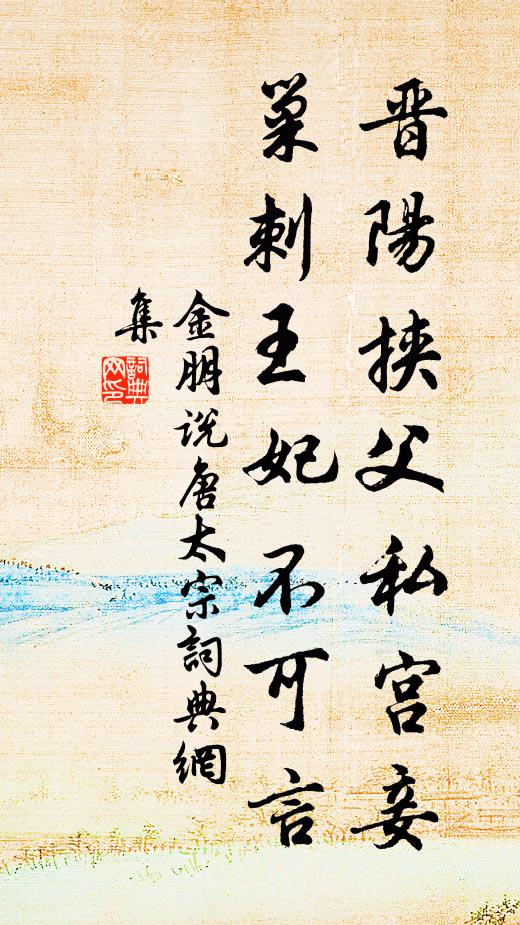 晋陽挟父私宫妾
巢刺王妃不可言
金朋说唐太宗詞典網
集
詞典
网印